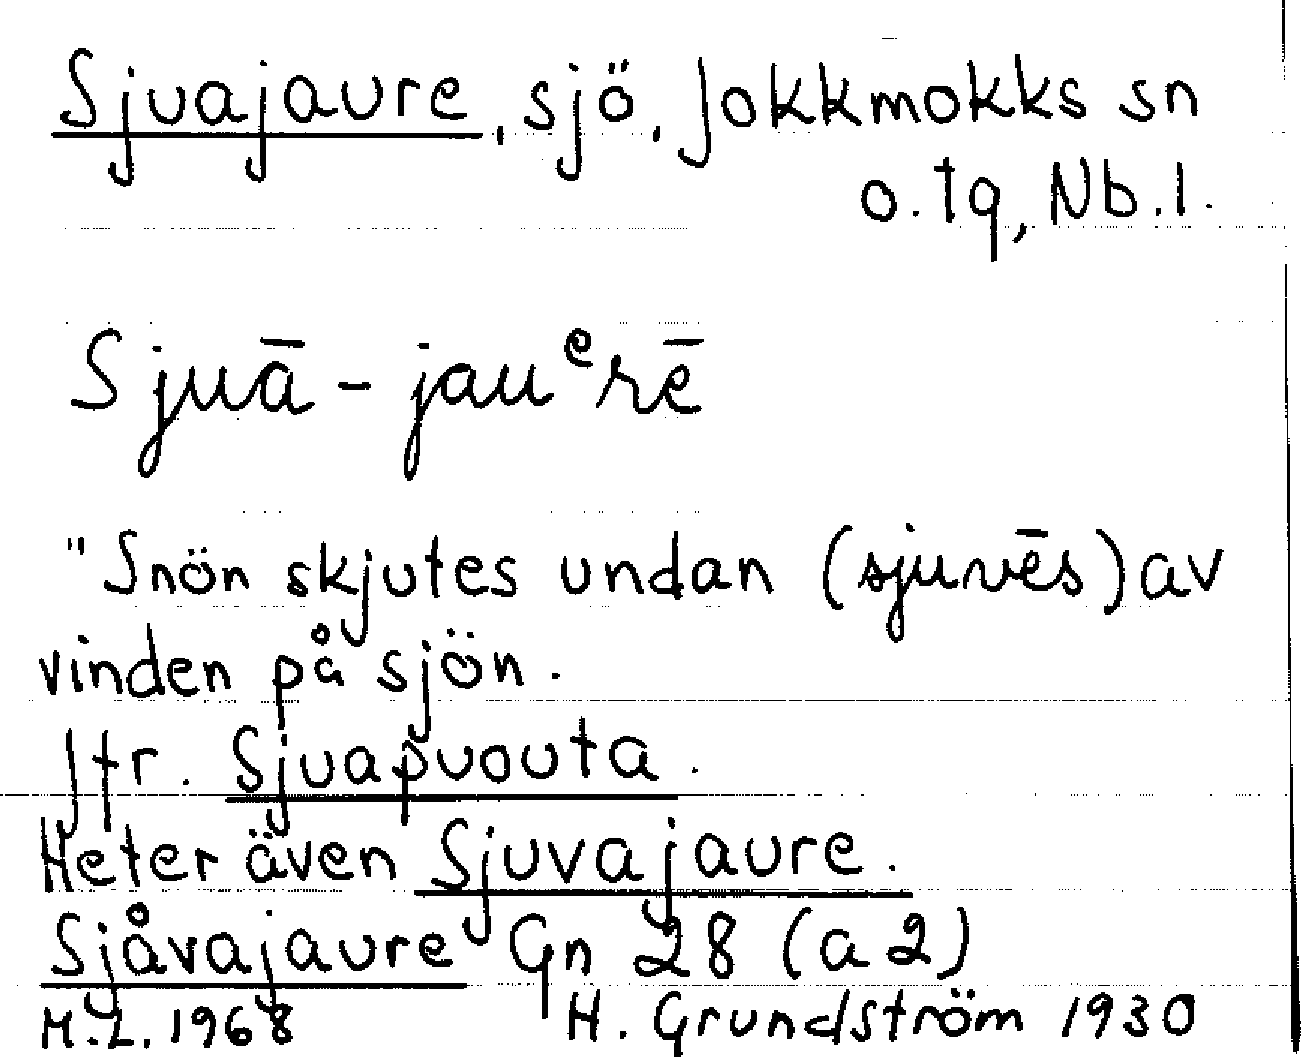 Sjuajaure, sjö, Jokkmokks sn
o. tg, Nb. l.
Sjuā-jauᵉrē
"Snön skjutes undan (sjuvēs) av
vinden på sjön.
Jfr. Sjuapuouta.
Heter även Sjuvajaure.
Sjåvajaure Gn 28 (a2)
M.L. 1968 H. Grundström 1930